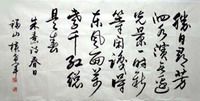 勝日尋芳
泗水濱無邊
光景一時新
等閑識得
東風面萬
紫千紅總
是春
朱熹詩春日